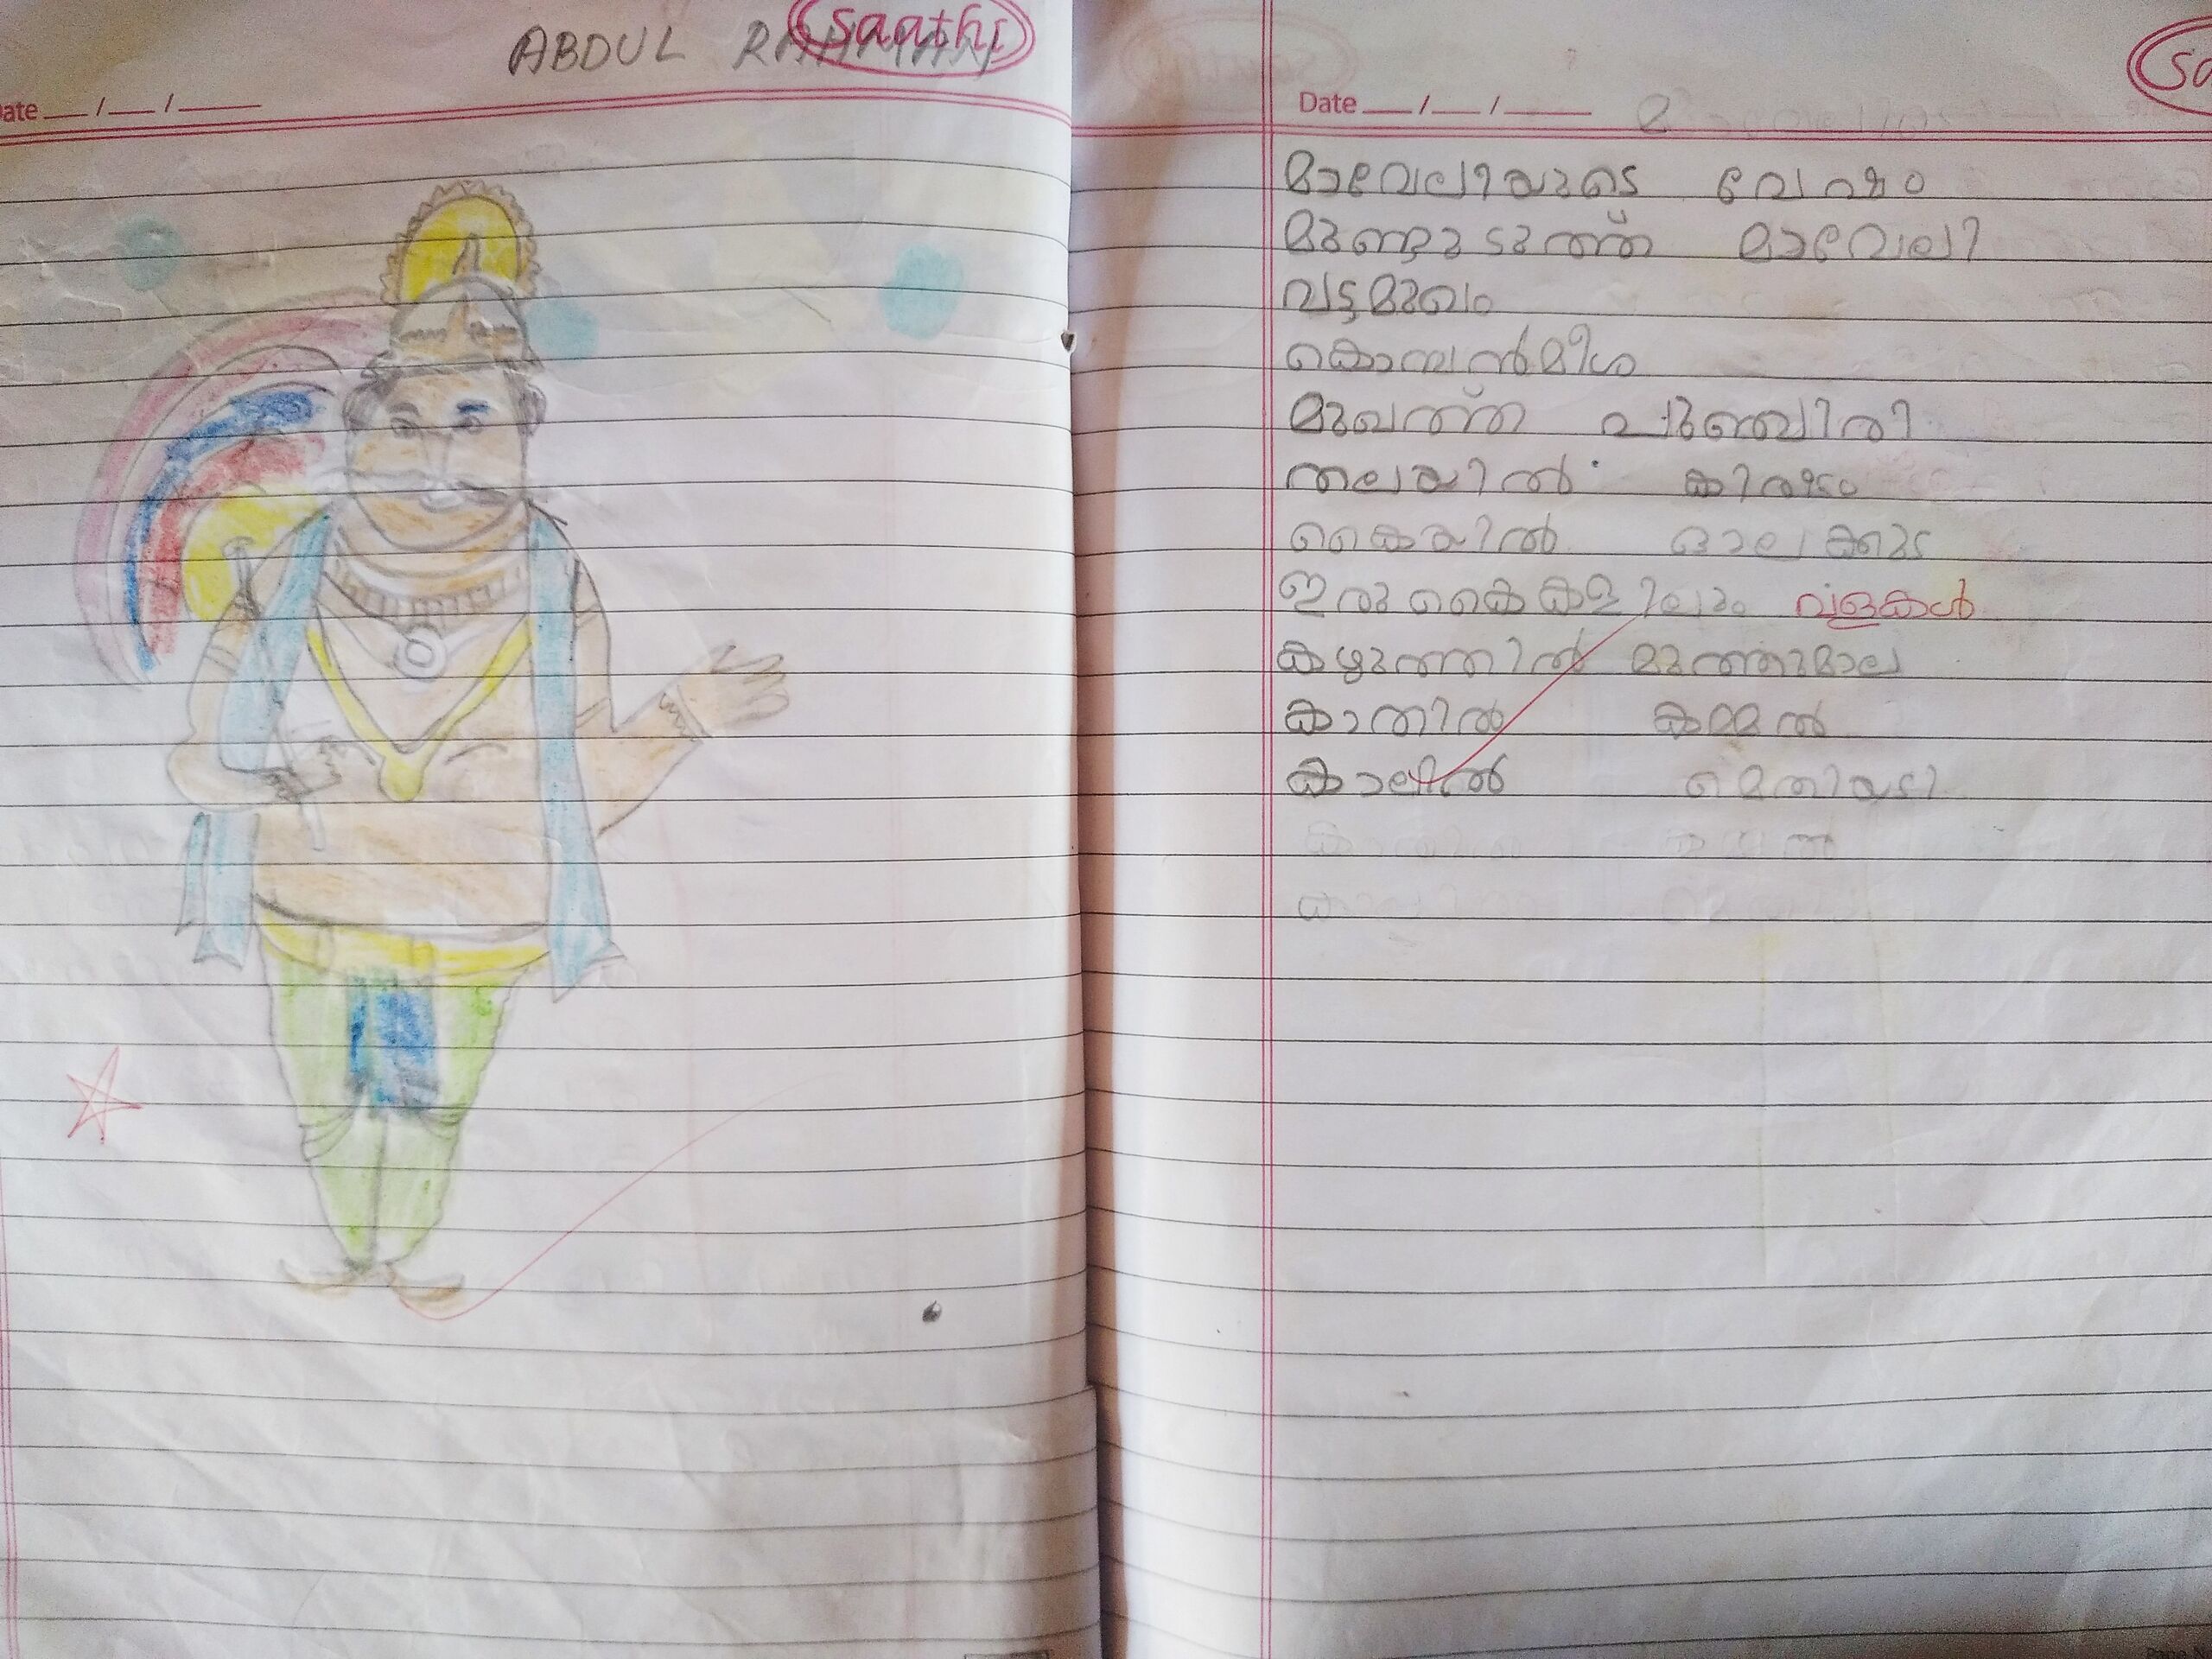 ABDUL RAHMAN
saathi
Date __/__/____
Date __/__/____
മാവേലിയുടെ വേഷം
മുണ്ടുടുത്ത് മാവേലി
വട്ടമുഖം
കൊമ്പൻമീശ
മുഖത്ത് പുഞ്ചിരി
തലയിൽ കിരീടം
കൈയിൽ ഓലക്കുട
ഇരു കൈകളിലും വളകൾ
കഴുത്തിൽ മുത്തുമാല
കാതിൽ കമ്മൽ
കാലിൽ മെതിയടി